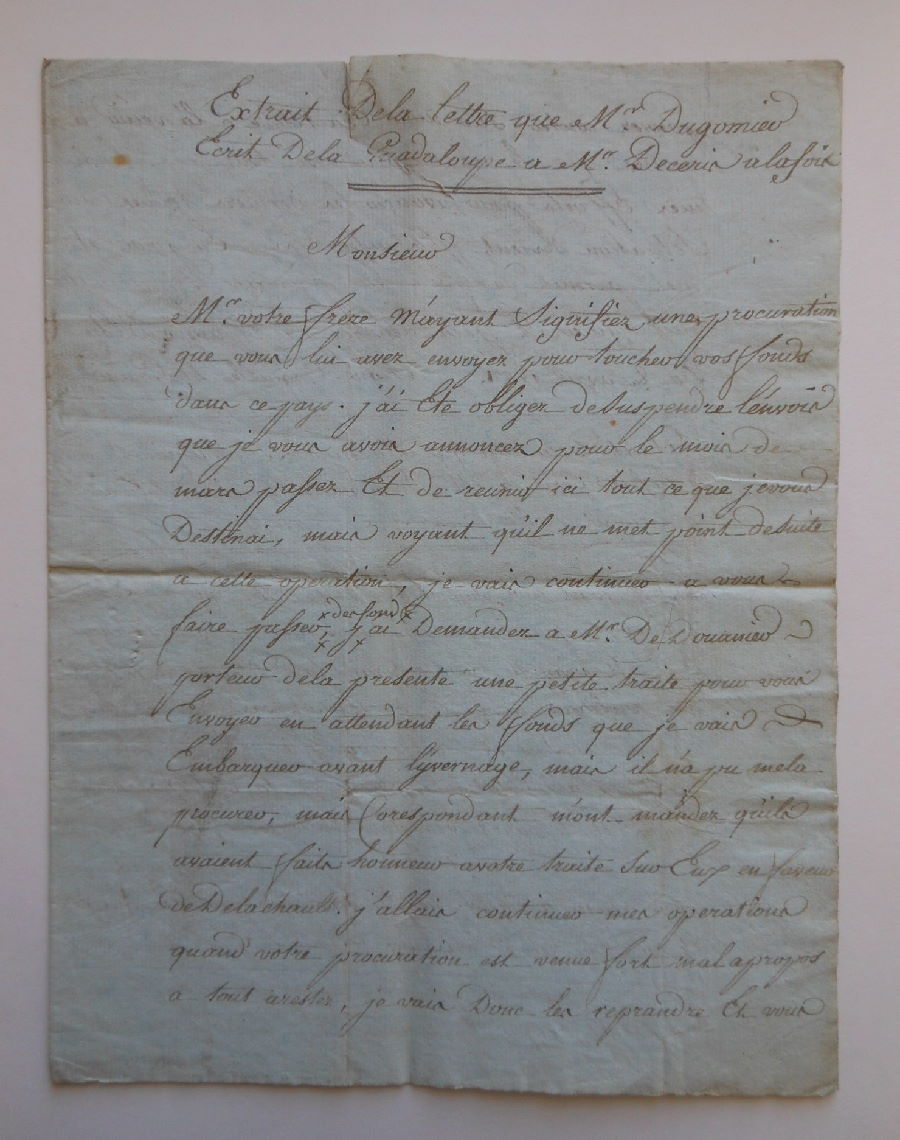 Extrait Dela lettre que Mr. Dugomier
Ecrit Dela Guadaloupe a Mr. Deceris
Monsieur
Mr. votre frere m'ayant Signifiez une procuration
que vous lui avez envoyez pour toucher vos fonds
dans ce pays. j'ai Eté obligez de suspendre l'envois
que je vous avois annoncez pour le mois de
mars passez Et de reunir ici tout ce que je vous
Destinai, mais voyant qu'il ne met point de suite
a cette operation, je vais continuer a vous
x des fonds x
faire passer, j'ai Demandez a Mr. De Douamier
porteur dela presente une petite traite pour vous
Envoyer en attendant les fonds que je vais
Embarquer avant lyvernage, mais il n'a pu me la
procurer, mais Corespondant m'ont mandez qu'ils
avaient faits honneur a votre traite sur Eux en faveur
de Delachault. j'allais continuer mes operations
quand votre procuration est venue fort mal apropos
a tout arester, je vais Donc les reprandre Et vous